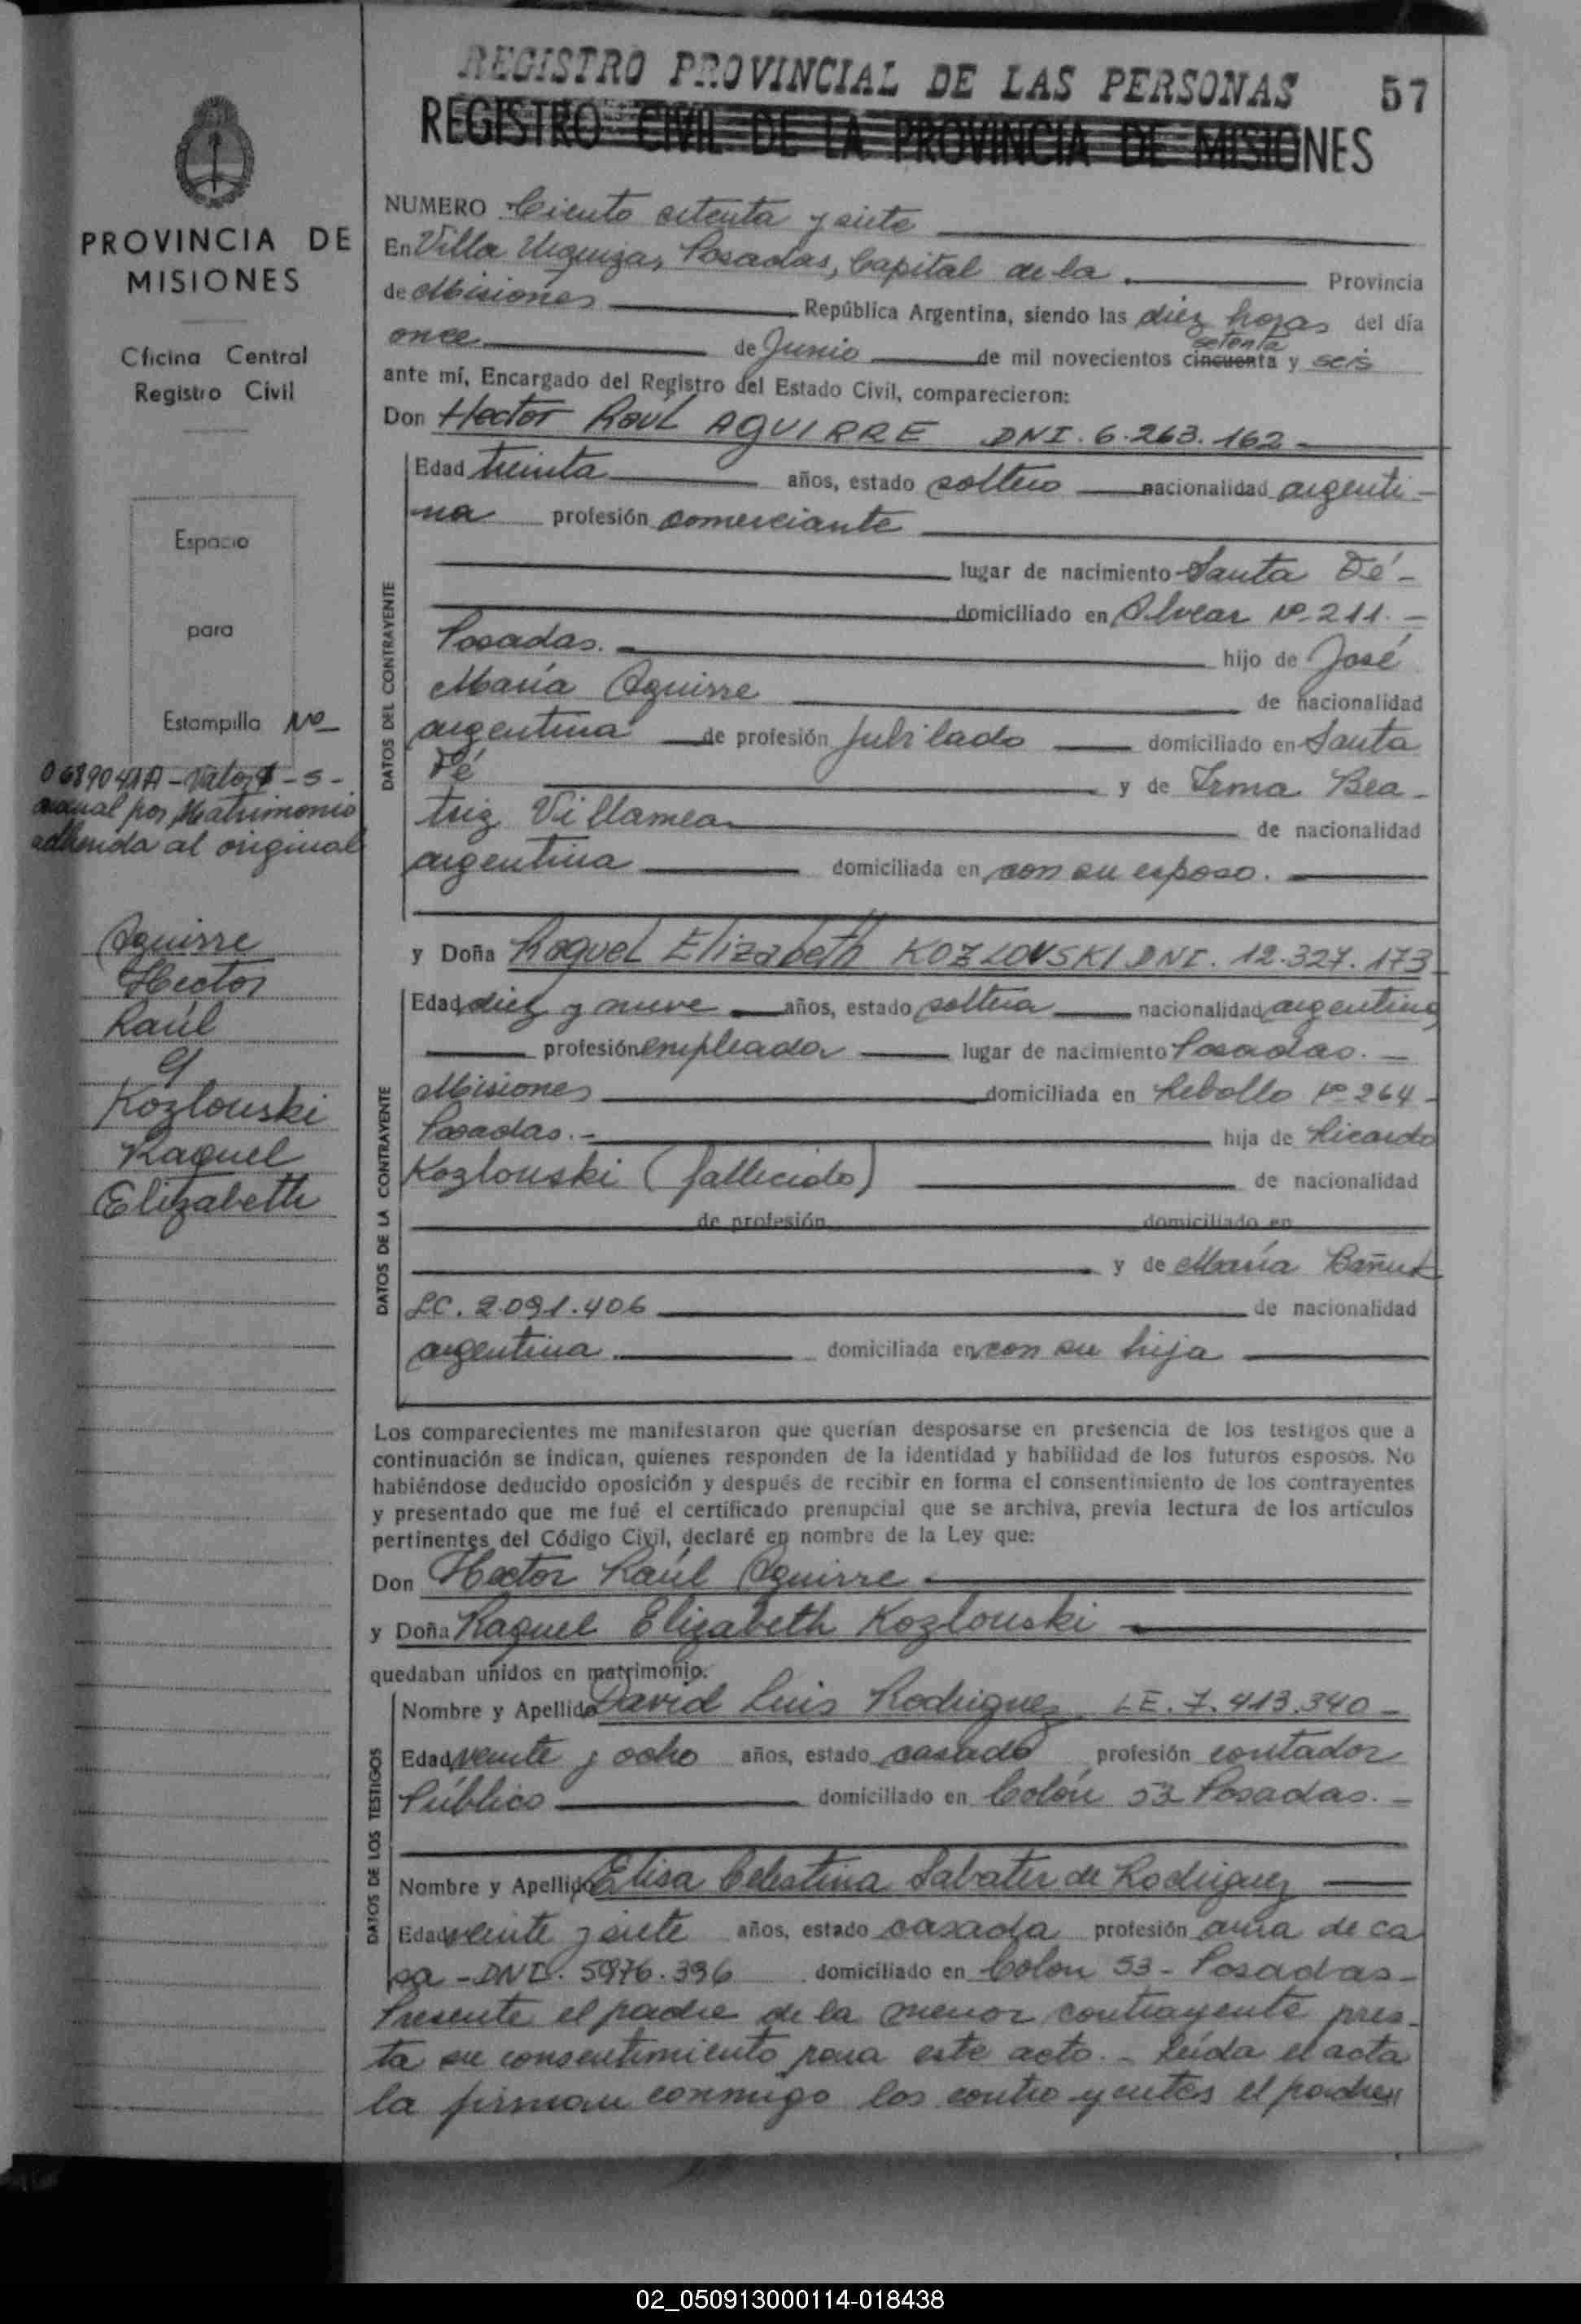 REGISTRO PROVINCIAL DE LAS PERSONAS 57
REGISTRO CIVIL DE LA PROVINCIA DE MISIONES
PROVINCIA DE
MISIONES
Oficina Central
Registro Civil
Espacio
para
Estampilla Nº
068904 - Valor $ - 5 -
por Matrimonio
adherida al original
Aguirre
Hector
Raúl
y
Kozlouski
Raquel
Elizabeth
NUMERO Ciento setenta y siete
En Villa Urquiza, Posadas, Capital de la Provincia
de Misiones República Argentina, siendo las diez horas del día
setenta
once de Junio de mil novecientos cincuenta y seis
ante mí, Encargado del Registro del Estado Civil, comparecieron:
Don Hector Raúl AGUIRRE DNI. 6.263.162 -
DATOS DEL CONTRAYENTE
Edad treinta años, estado soltero nacionalidad argenti-
na profesión comerciante
lugar de nacimiento Santa Fé -
domiciliado en Alvear Nº 211. -
Posadas. hijo de José
María Aguirre de nacionalidad
argentina de profesión Jubilado domiciliado en Santa
Fé y de Irma Bea-
triz Villamea de nacionalidad
argentina domiciliada en con su esposo.
y Doña Raquel Elizabeth KOZLOVSKI DNI. 12.327.173
DATOS DE LA CONTRAYENTE
Edad diez y nueve años, estado soltera nacionalidad argentina
profesión empleada lugar de nacimiento Posadas. -
Misiones domiciliada en Rebollo Nº 264 -
Posadas. - hija de Ricardo
Kozlouski (fallecido) de nacionalidad
de profesión domiciliado en
y de María Bañuk
LC. 2.091.406 de nacionalidad
argentina domiciliada en con su hija
Los comparecientes me manifestaron que querían desposarse en presencia de los testigos que a
continuación se indican, quienes responden de la identidad y habilidad de los futuros esposos. No
habiéndose deducido oposición y después de recibir en forma el consentimiento de los contrayentes
y presentado que me fué el certificado prenupcial que se archiva, previa lectura de los artículos
pertinentes del Código Civil, declaré en nombre de la Ley que:
Don Hector Raúl Aguirre
y Doña Raquel Elizabeth Kozlouski
quedaban unidos en matrimonio.
DATOS DE LOS TESTIGOS
Nombre y Apellido David Luis Rodriguez LE. 7.413.340 -
Edad veinte y ocho años, estado casado profesión contador
Público domiciliado en Colón 53 Posadas. -
Nombre y Apellido Elisa Celestina Sabater de Rodriguez
Edad veinte y siete años, estado casada profesión ama de ca
sa - DNI. 5976.396 domiciliado en Colon 53 - Posadas -
Presente el padre de la menor contrayente pres-
ta su consentimiento para este acto. - Leída el acta
la firman conmigo los contrayentes el padre
02_050913000114-018438